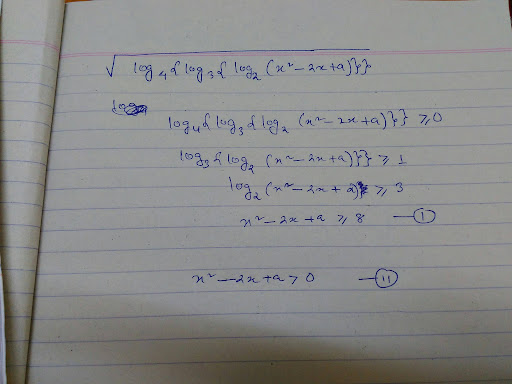 √ log₄{log₃{log₂ (x² − 2x + a)}}
log₄{log₃{log₂ (x² − 2x + a)}} ⩾ 0
log₃{log₂ (x² − 2x + a)}} ⩾ 1
log₂ (x² − 2x + a) ⩾ 3
x² − 2x + a ⩾ 8 —(I)
x² − 2x + a > 0 —(II)